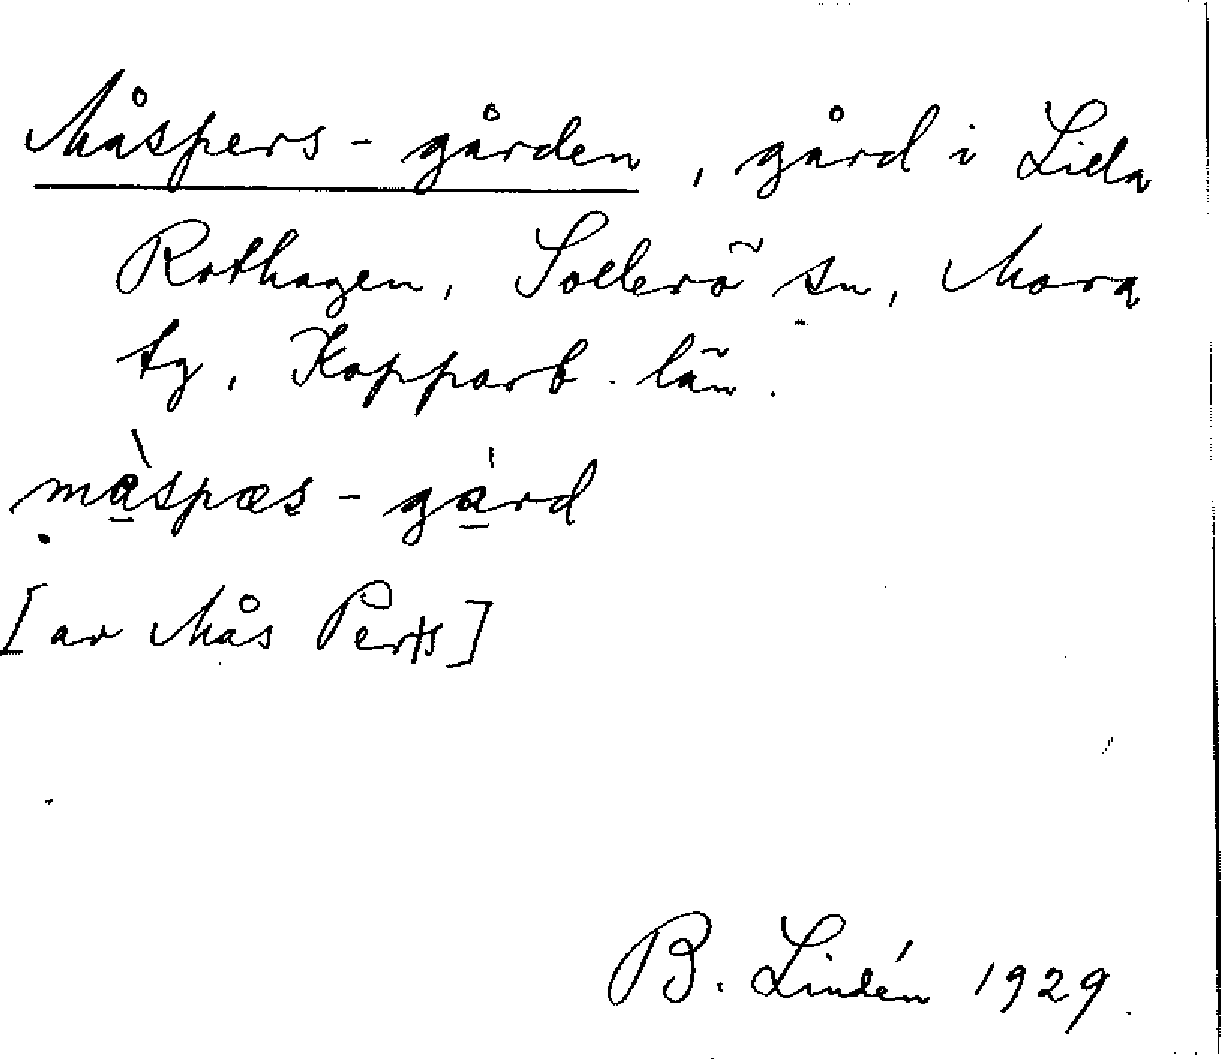 Måspers-gården, gård i Lida
Rothagen, Sollerö sn, Mora
tg, Kopparb. län.
màspæs-gárd
[av Mås Pers]
B. Lindén 1929.